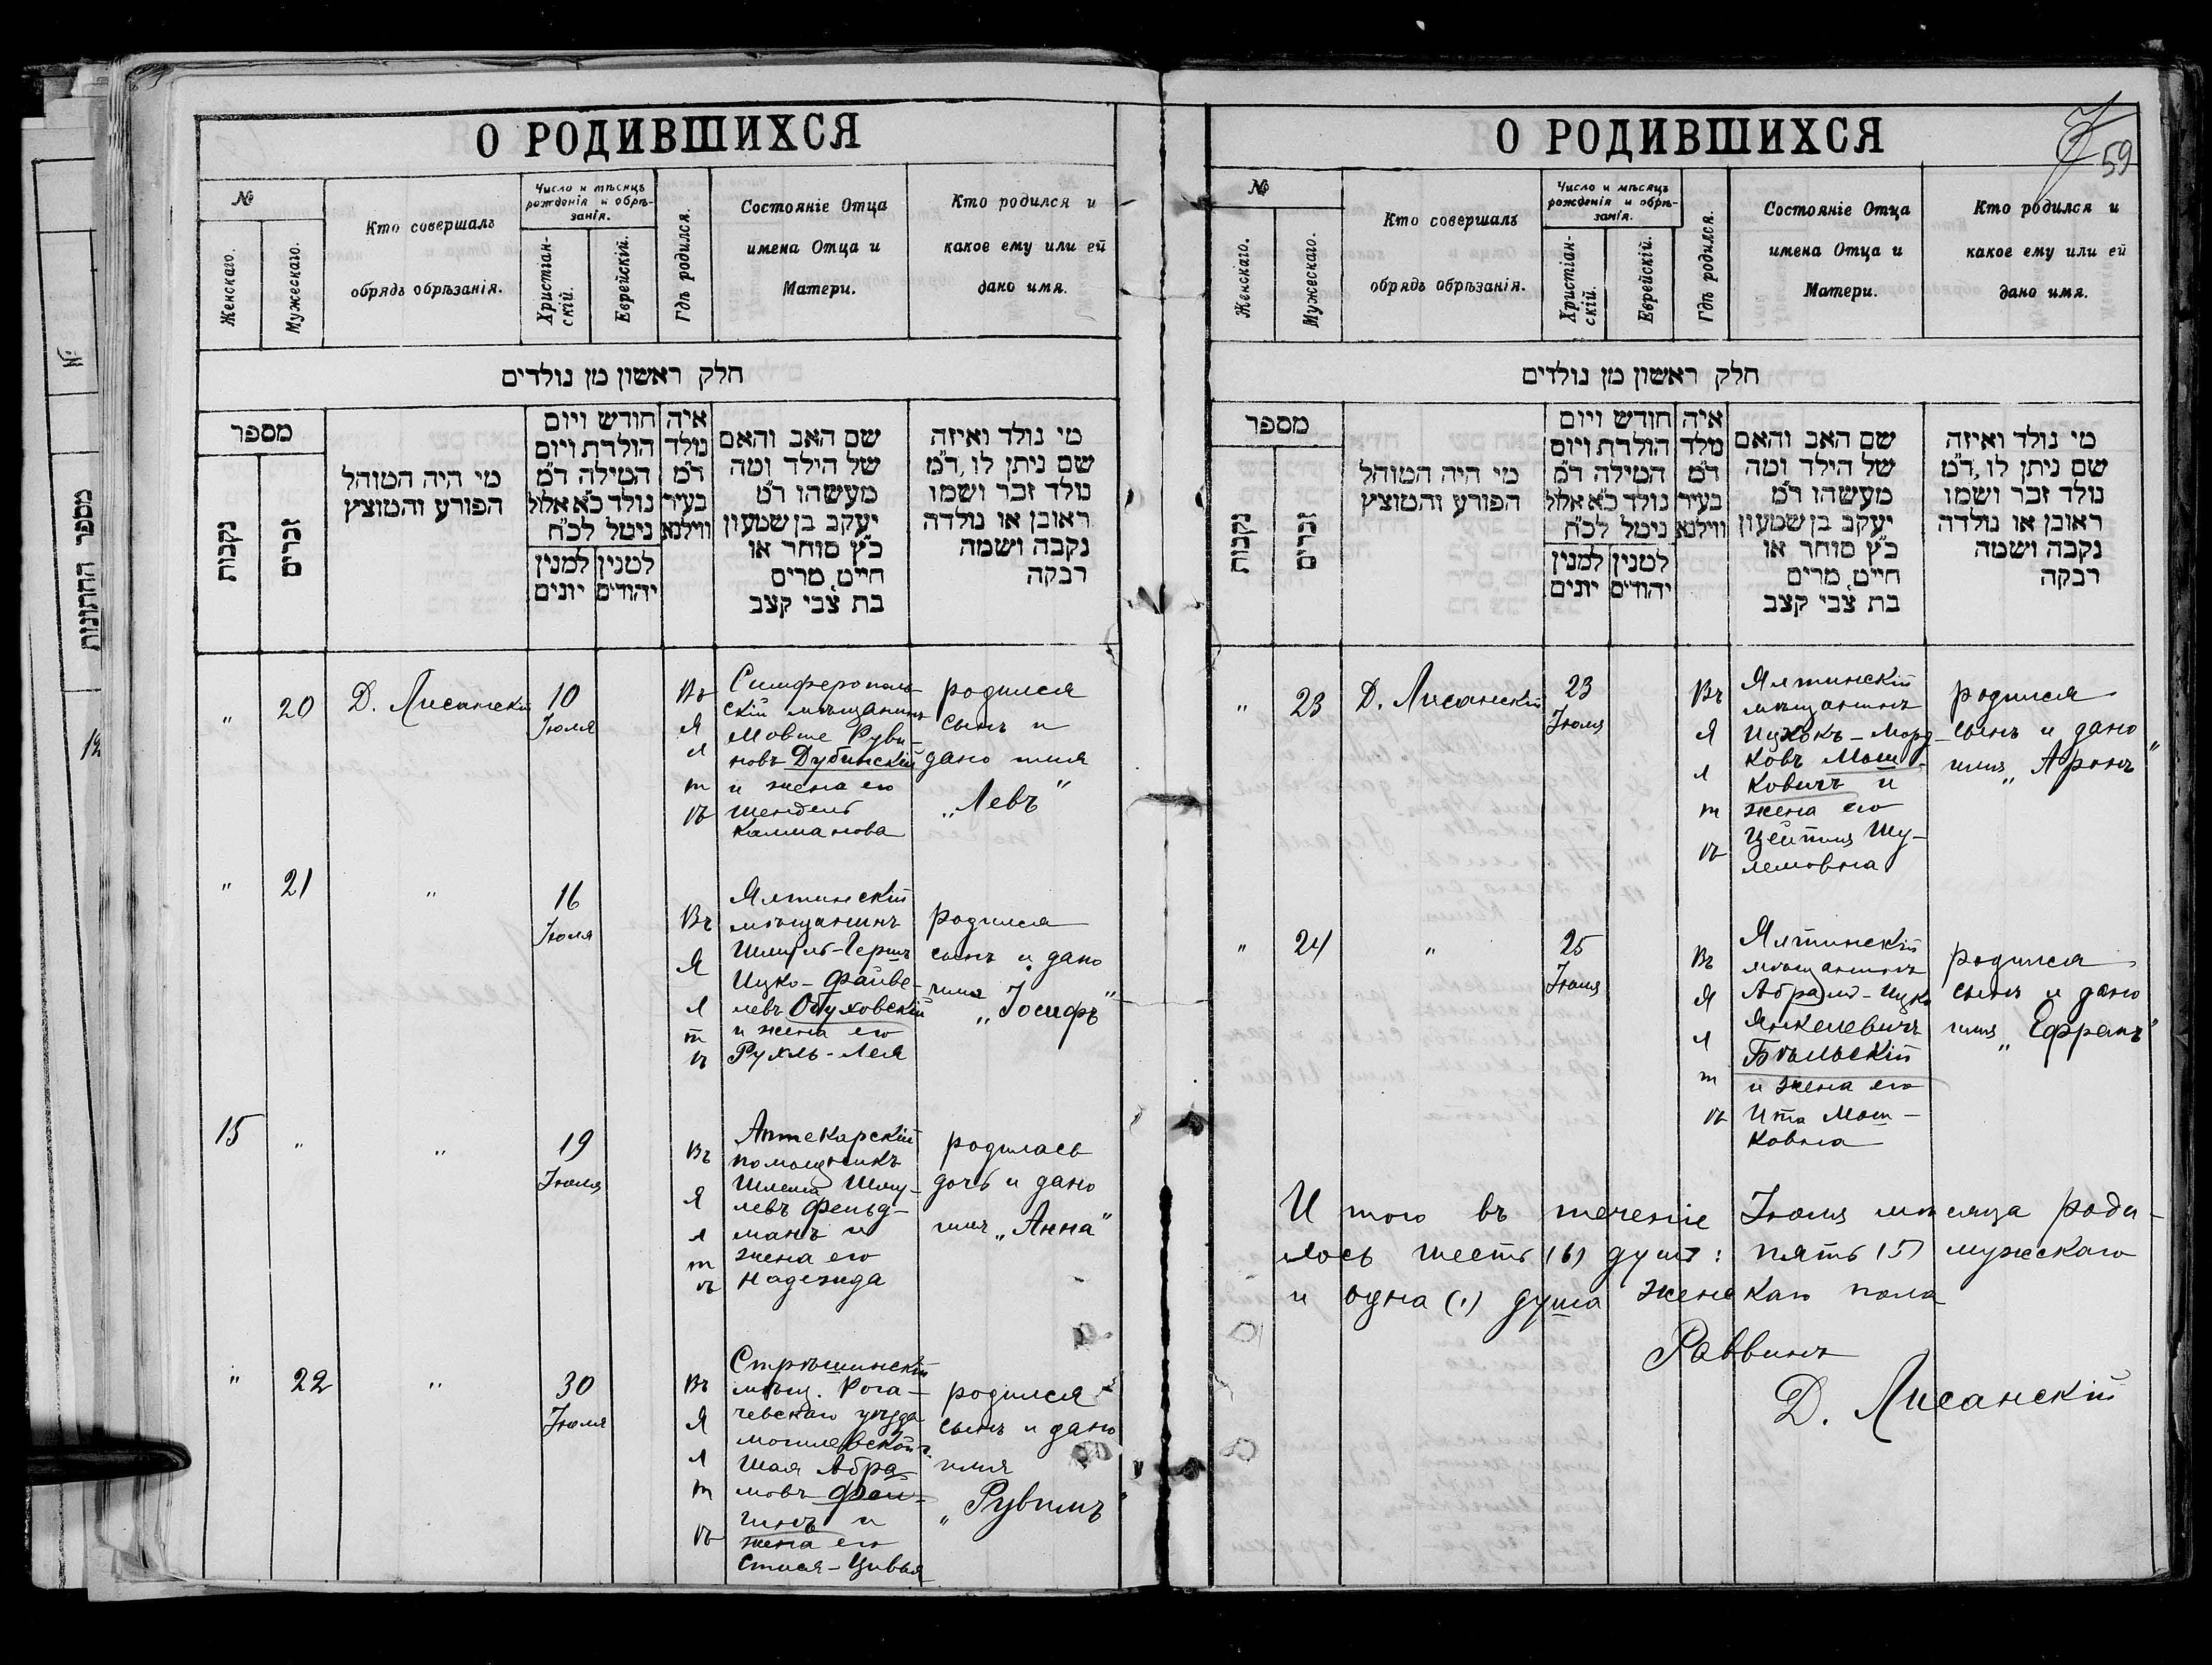 О РОДИВШИХСЯ
№
Женскаго.
Мужескаго.
Кто совершалъ
обрядъ обрѣзанія.
Число и мѣсяцъ
рожденія и обрѣ-
занія.
Христіан-
скій.
Еврейскій.
Гдѣ родился.
Состояніе Отца
имена Отца и
Матери.
Кто родился и
какое ему или ей
дано имя.
חלק ראשון מן נולדים
מספר
נקבות
זכרים
מי היה המוהל
הפורע והמוצץ
חודש ויום
הולדת ויום
המילה ד״מ
נולד כ״א אלול
ניטל לכ״ח
למנין
יונים
למנין
יהודים
איה
נולד
ד״מ
בעיר
ווילנא
שם האב והאם
של הילד ומה
מעשהו ד״מ
יעקב בן שמעון
כ״ץ סוחר או
חייט, מרים
בת צבי קצב
מי נולד ואיזה
שם ניתן לו, ד״מ
נולד זכר ושמו
ראובן או נולדה
נקבה ושמה
רבקה
" 20 Д. Лисанскій 10
Іюля
Въ
Я
л
т
ѣ
Симферополь-
скій мѣщанинъ
Мовше Руви-
новъ Дубинскій
и жена его
Шендель
Калманова
родился
сынъ и
дано имя
„Левъ"
" 21 " 16
Іюля
Въ
Я
л
т
ѣ
Ялтинскій
мѣщанинъ
Шмуль-Гершъ
Ицко-Файве-
левъ Обуховскій
и жена его
Рухль-Лея
родился
сынъ и дано
имя
„Іосифъ"
15 " " 19
Іюля
Въ
Я
л
т
ѣ
Аптекарскій
помощникъ
Шлема Шму-
левъ Фельд-
манъ и
жена его
Надежда
родилась
дочь и дано
имя „Анна"
" 22 " 30
Іюля
Въ
Я
л
т
ѣ
Стрѣшинскій
мѣщ. Рога-
чевскаго уѣзда
Могилевской г.
Шая Абра-
мовъ
и
жена его
Стися-Цивья
родился
сынъ и дано
имя
„Рувимъ"
О РОДИВШИХСЯ
59
№
Женскаго.
Мужескаго.
Кто совершалъ
обрядъ обрѣзанія.
Число и мѣсяцъ
рожденія и обрѣ-
занія.
Христіан-
скій.
Еврейскій.
Гдѣ родился.
Состояніе Отца
имена Отца и
Матери.
Кто родился и
какое ему или ей
дано имя.
חלק ראשון מן נולדים
מספר
נקבות
זכרים
מי היה המוהל
הפורע והמוצץ
חודש ויום
הולדת ויום
המילה ד״מ
נולד כ״א אלול
ניטל לכ״ח
למנין
יונים
למנין
יהודים
איה
נולד
ד״מ
בעיר
ווילנא
שם האב והאם
של הילד ומה
מעשהו ד״מ
יעקב בן שמעון
כ״ץ סוחר או
חייט, מרים
בת צבי קצב
מי נולד ואיזה
שם ניתן לו, ד״מ
נולד זכר ושמו
ראובן או נולדה
נקבה ושמה
רבקה
" 23 Д. Лисанскій 23
Іюля
Въ
Я
л
т
ѣ
Ялтинскій
мѣщанинъ
Ицхокъ-Морд-
ковъ Мош-
ковичъ и
жена его
Цейтля Шу-
лемовна
родился
сынъ и дано
имя „Аронъ"
" 24 " 25
Іюля
Въ
Я
л
т
ѣ
Ялтинскій
мѣщанинъ
Абрамъ-Ицко
Янкелевичъ
Бѣльскій
и жена его
Ита Мош-
ковна
родился
сынъ и дано
имя „Ефремъ"
Итого въ теченіе Іюля мѣсяца роди-
лось шесть (6) душъ: пять (5) мужскаго
и одна (1) душа женскаго пола
Раввинъ
Д. Лисанскій
מספר החתונות
№
12